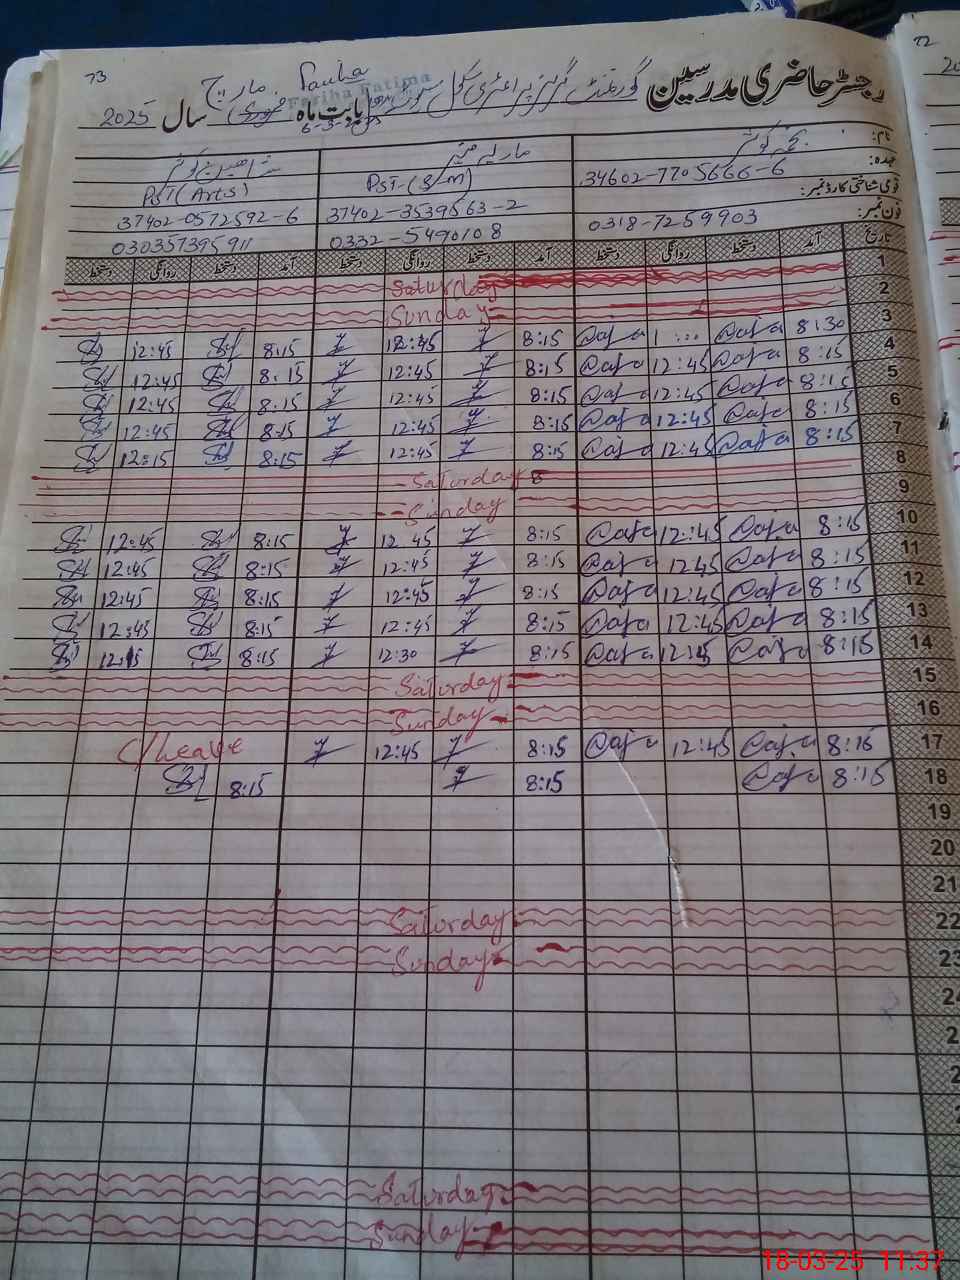 73
72
Fariha Fatima
6-3-2025
رجسٹر حاضری مدرسین گورنمنٹ گرلز پرائمری سکول بابت ماہ مارچ سال 2025
نام:
عہدہ: PST (S-M) PST (Arts)
قومی شناختی کارڈ نمبر: 34602-7705666-6 37402-3539563-2 37402-0572592-6
فون نمبر: 0318-7259903 0332-5490108 030357395911
تاریخ آمد دستخط روانگی دستخط آمد دستخط روانگی دستخط آمد دستخط روانگی دستخط
1 Saturday
2 Sunday
3 8:30 8:15 12:45 8:15 12:45
4 8:15 12:45 8:15 12:45 8.15 12:45
5 8:15 12:45 8:15 12:45 8.15 12:45
6 8:15 12:45 8:15 12:45 8:15 12:45
7 8:15 12:45 8:15 12:45 8:15 12:15
8 Saturday
9 Sunday
10 8:15 12:45 8:15 12 45 8:15 12:45
11 8:15 12 45 8:15 12:45 8:15 12:45
12 8:15 12:45 8:15 12:45 8:15 12:45
13 8:15 12:45 8:15 12:45 8:15 12:45
14 8:15 8:15 12:30 8:15
15 Saturday
16 Sunday
17 8:16 12:45 8:15 12:45 C/Leave
18 8:15 8:15 8:15
19
20
21
22 Saturday
23 Sunday
Saturday
Sunday
18-03-25 11:37